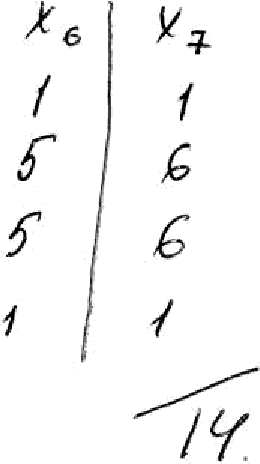 x₆ | x₇
1 | 1
5 | 6
5 | 6
1 | 1
14.